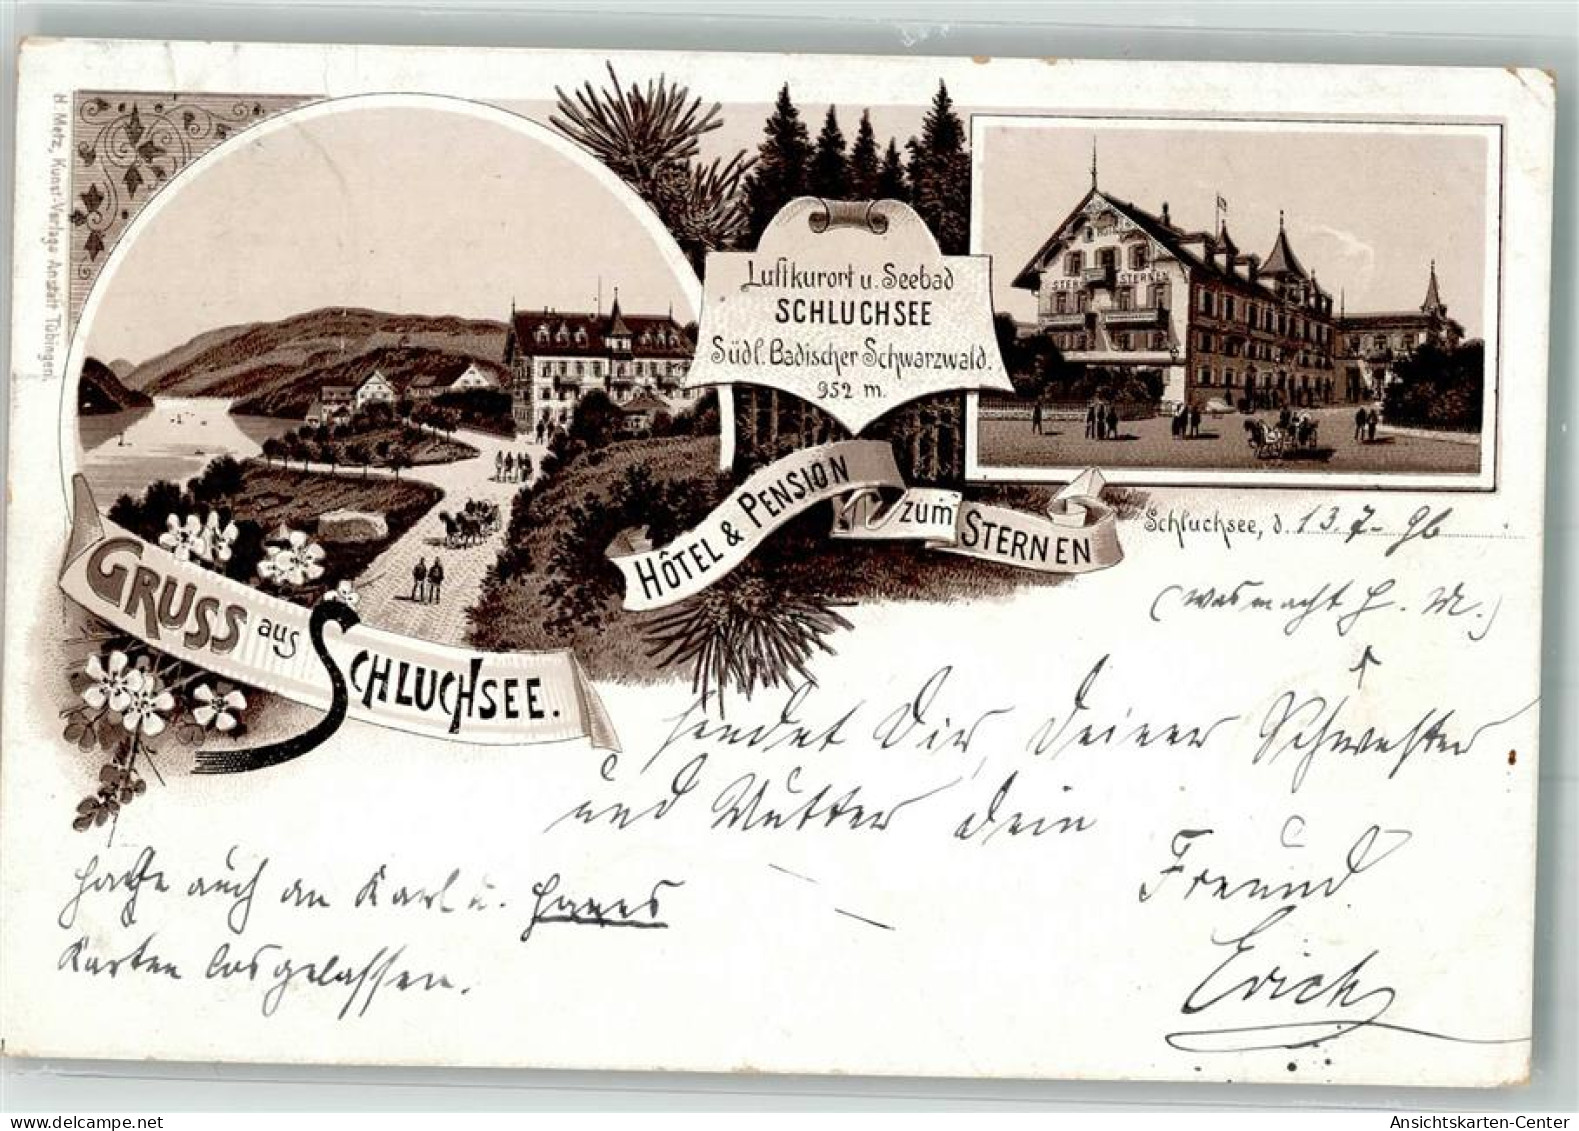 H. Metz, Kunst-Verlags Anstalt Tübingen.
Luftkurort u. Seebad
SCHLUCHSEE
Südl. Badischer Schwarzwald.
952 m.
HOTEL
STERNEN
HÔTEL & PENSION zum STERNEN
GRUSS aus SCHLUCHSEE.
Schluchsee, d. 13. 7. 96
(was macht H. M.)
sendet Dir, Deiner Schwester
und Mutter dein
Freund
Erich
habe auch an Karl u. Hanns
Karten losgelassen.
AnsichtsKarten-Center
oldthing.de